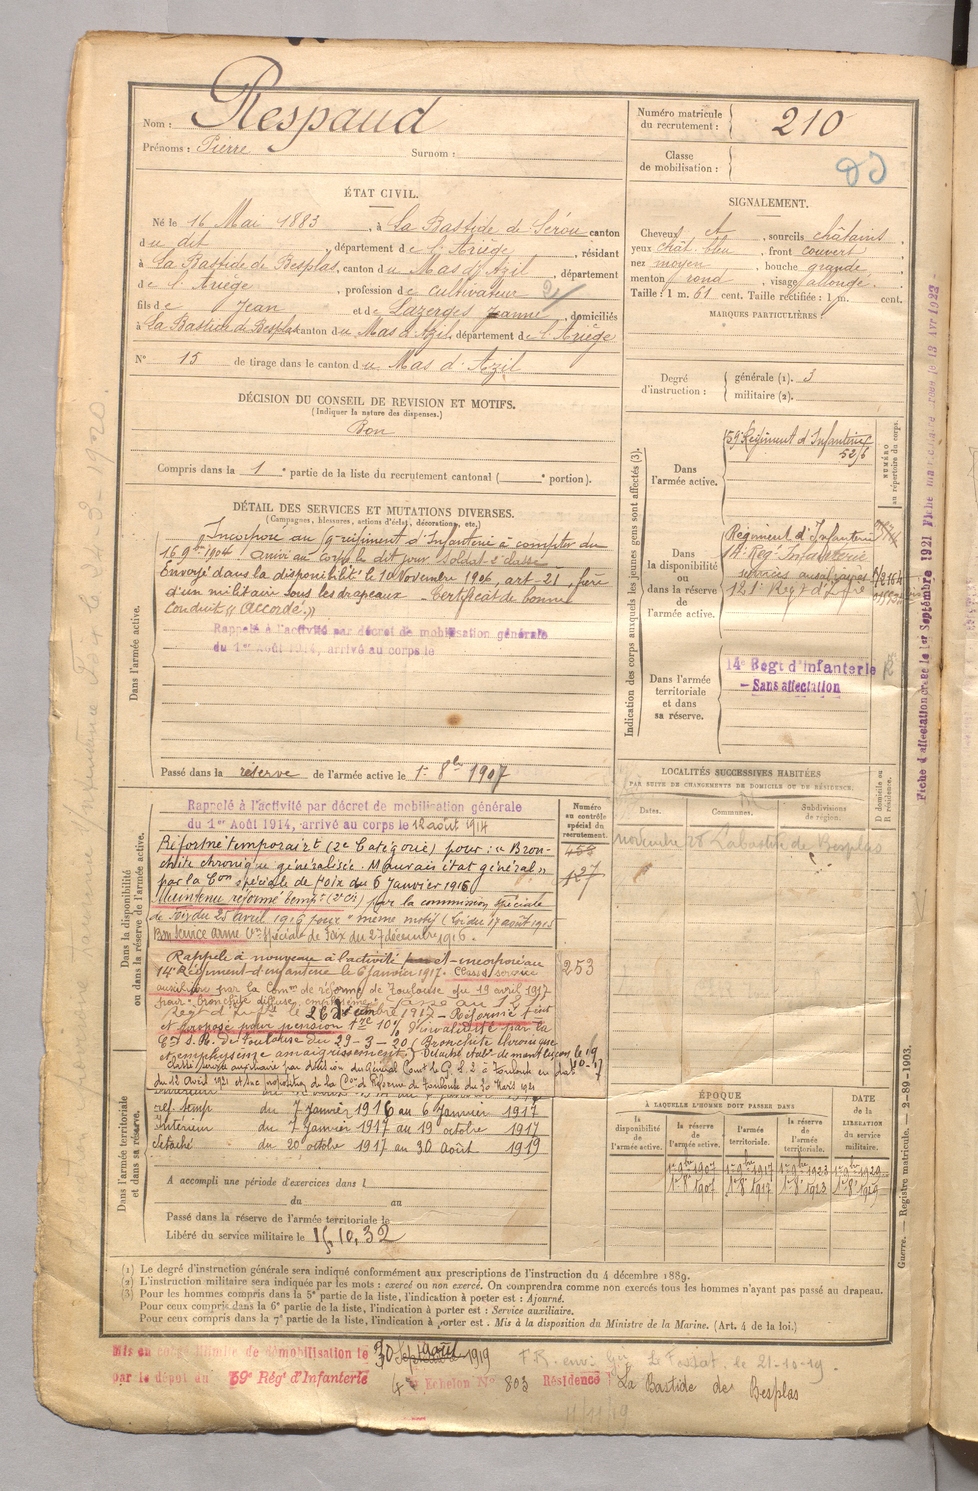 Nom : Respaud
Prénoms : Pierre Surnom :
Numéro matricule du recrutement : 210
Classe de mobilisation :
ÉTAT CIVIL.
Né le 16 Mai 1883, à La Bastide de Sérou canton
du dit, département de l'Ariège, résidant
à La Bastide de Besplas, canton du Mas d'Azil, département
de l'Ariège, profession de cultivateur
fils de Jean et de Lazerges Jeanne, domiciliés
à La Bastide de Besplas canton du Mas d'Azil, département de l'Ariège
N° 15 de tirage dans le canton du Mas d'Azil
SIGNALEMENT.
Cheveux, sourcils châtains,
yeux chât. bleu, front couvert,
nez moyen, bouche grande,
menton rond, visage allongé.
Taille : 1 m. 61 cent. Taille rectifiée : 1 m. cent.
MARQUES PARTICULIÈRES :
Degré d'instruction : générale (1). 3
militaire (2).
DÉCISION DU CONSEIL DE REVISION ET MOTIFS.
(Indiquer la nature des dispenses.)
Bon
Compris dans la 1e partie de la liste du recrutement cantonal ( e portion).
DÉTAIL DES SERVICES ET MUTATIONS DIVERSES.
(Campagnes, blessures, actions d'éclat, décorations, etc.)
Dans l'armée active.
Incorporé au 59e régiment d'Infanterie à compter du
16 9bre 1904 arrivé au corps le dit jour soldat 2e classe
Envoyé dans la disponibilité le 10 Novembre 1906, art-21, frère
d'un militaire sous les drapeaux - Certificat de bonne
conduite « Accordé. »
Rappelé à l'activité par décret de mobilisation générale
du 1er Août 1914, arrivé au corps le
Passé dans la réserve de l'armée active le 1er 8bre 1907
Indication des corps auxquels les jeunes gens sont affectés (3).
NUMÉRO au répertoire du corps.
Dans l'armée active.
59e Régiment d'Infanterie
Dans la disponibilité ou dans la réserve de l'armée active.
Régiment d'Infanterie
14e Rég. Infanterie
services auxiliaires
121e Regt d'Infrie
Dans l'armée territoriale et dans sa réserve.
14e Regt d'Infanterie
- Sans affectation
Fiche d'affectation créée le 1er Septembre 1921
LOCALITÉS SUCCESSIVES HABITÉES
PAR SUITE DE CHANGEMENTS DE DOMICILE OU DE RÉSIDENCE.
Dates. Communes. Subdivisions de région. D domicile ou R résidence.
novembre 28 Labastide de Besplas
Dans la disponibilité ou dans la réserve de l'armée active.
Numéro au contrôle spécial du recrutement.
Rappelé à l'activité par décret de mobilisation générale
du 1er Août 1914, arrivé au corps le 12 août 1914
Réformé temporairet (2e Catégorie) pour : « Bron-
chite chronique généralisée. Mauvais état général »
par la Con spéciale de Foix du 6 Janvier 1916
Maintenu réformé tempre (2e Cie) par la commission spéciale
de Foix du 25 avril 1916 pour "même motif" (Loi du 17 août 1915
Bon service armé Con spéciale de Foix du 27 décembre 1916.
Rappelé à nouveau à l'activité et incorporé au
14e Régiment d'infanterie le 6 janvier 1917. Classé service
auxiliaire par la Comon de réforme de Toulouse du 19 avril 1917
253
et proposé pour pension 10% d'invalidité par la
de Toulouse du 29-3-20 (Bronchite chronique
et emphysème amaigrissement)
du 12 Avril 1921
Dans l'armée territoriale et dans sa réserve.
ref. temp du 7 Janvier 1916 au 6 Janvier 1917
Intérieur du 7 Janvier 1917 au 19 octobre 1917
Détaché du 20 octobre 1917 au 30 Août 1919
A accompli une période d'exercices dans l
du au
Passé dans la réserve de l'armée territoriale le
Libéré du service militaire le 15.10.32
ÉPOQUE
À LAQUELLE L'HOMME DOIT PASSER DANS
DATE de la LIBÉRATION du service militaire.
la disponibilité de l'armée active. la réserve de l'armée active. l'armée territoriale. la réserve de l'armée territoriale.
1er 9bre 1907 1er 9bre 1917 1er 9bre 1923 1er 9bre 1929
1er 8bre 1907 1er 8bre 1917 1er 8bre 1923 1er 8bre 1929
(1) Le degré d'instruction générale sera indiqué conformément aux prescriptions de l'instruction du 4 décembre 1889.
(2) L'instruction militaire sera indiquée par les mots : exercé ou non exercé. On comprendra comme non exercés tous les hommes n'ayant pas passé au drapeau.
(3) Pour les hommes compris dans la 5e partie de la liste, l'indication à porter est : Ajourné.
Pour ceux compris dans la 6e partie de la liste, l'indication à porter est : Service auxiliaire.
Pour ceux compris dans la 7e partie de la liste, l'indication à porter est : Mis à la disposition du Ministre de la Marine. (Art. 4 de la loi.)
Guerre. — Registre matricule. — 2-89-1903.
Mis en congé illimité de démobilisation le 30 août 1919
par le dépôt du 59e Rég' d'Infanterie
4e Echelon N° 803 Résidence La Bastide de Besplas
le 21-10-19.
11/11/19